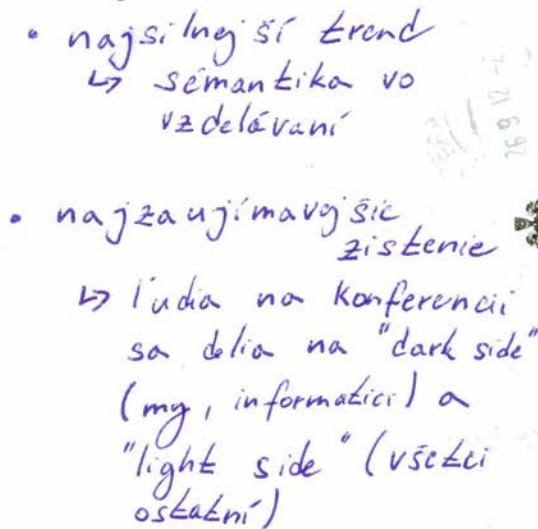 • najsilnejší trend
↳ sémantika vo
vzdelávaní
• najzaujímavejšie
zistenie
↳ ľudia na konferencii
sa delia na "dark side"
(my, informatici) a
"light side" (všetci
ostatní)